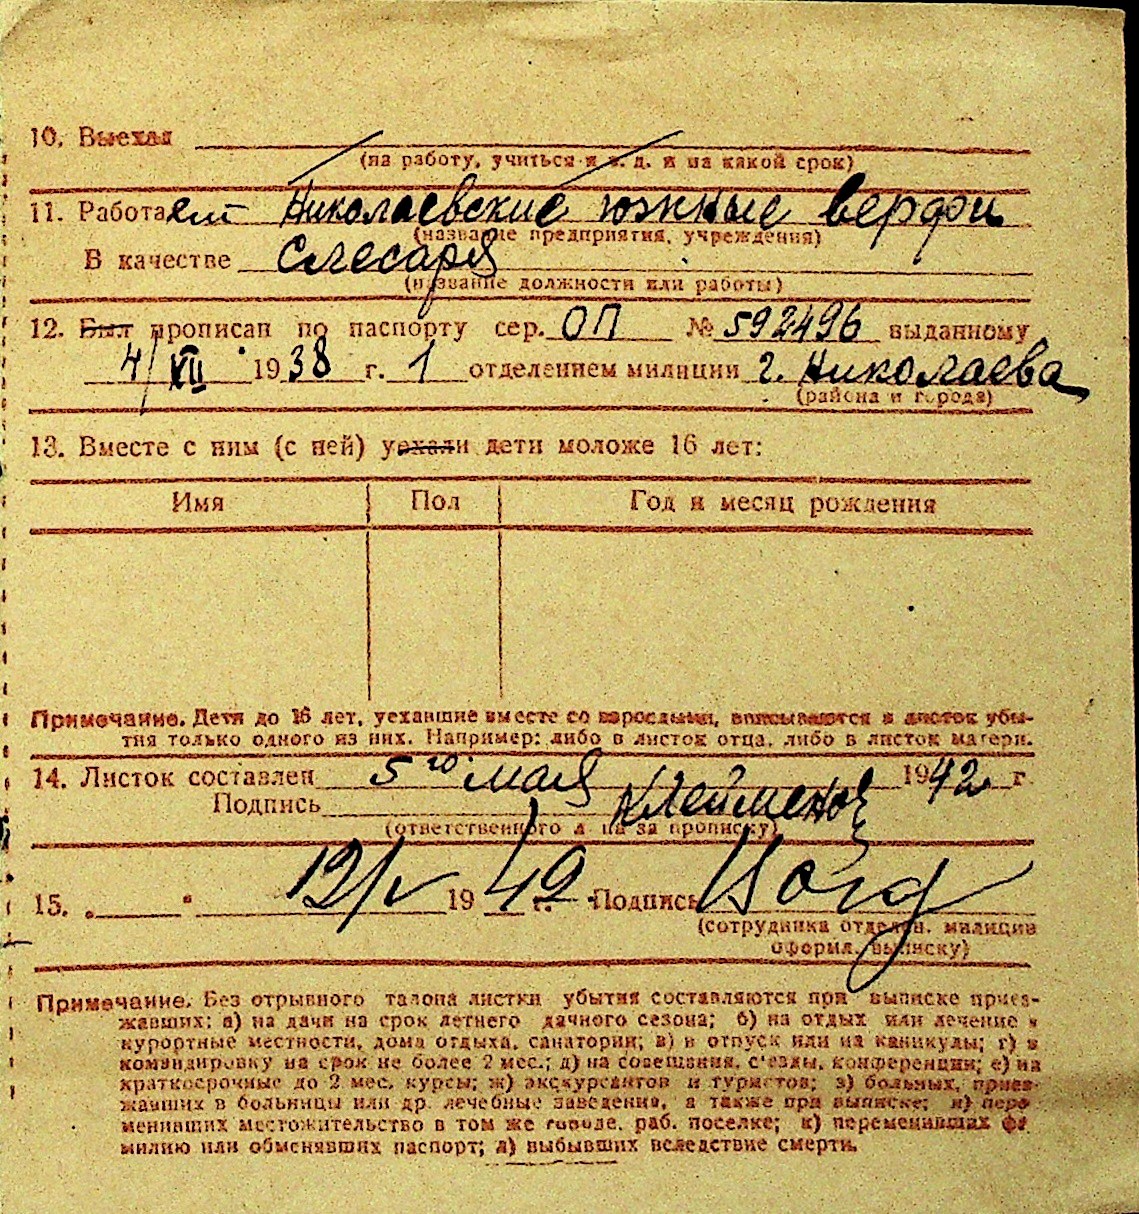 10. Выехал
(на работу, учиться и т. д. и на какой срок)
11. Работает Николаевские южные верфи
(название предприятия, учреждения)
В качестве слесаря
(название должности или работы)
12. Был прописан по паспорту сер. ОП № 592496 выданному
4/XII 1938 г. 1 отделением милиции г. Николаева
(района и города)
13. Вместе с ним (с ней) уехали дети моложе 16 лет:
Имя Пол Год и месяц рождения
Примечание. Дети до 16 лет, уехавшие вместе со взрослыми, вписываются в листок убы-
тия только одного из них. Например: либо в листок отца, либо в листок матери.
14. Листок составлен 5го мая 1942 г
Подпись
(ответственного л на за прописку)
15. „ " 12/V 1942 г. Подпись
(сотрудника отделен. милиции
оформл. выписку)
Примечание. Без отрывного талона листки убытия составляются при выписке приез-
жавших: а) на дачи на срок летнего дачного сезона; б) на отдых или лечение в
курортные местности, дома отдыха, санатории; в) в отпуск или на каникулы; г) в
командировку на срок не более 2 мес.; д) на совещания, с'езды, конференции; е) на
краткосрочные до 2 мес. курсы; ж) экскурсантов и туристов; з) больных, приез-
жавших в больницы или др. лечебные заведения, а также при выписке; и) пере
менивших местожительство в том же городе, раб. поселке; к) переменивших фа
милию или обменявших паспорт; л) выбывших вследствие смерти.